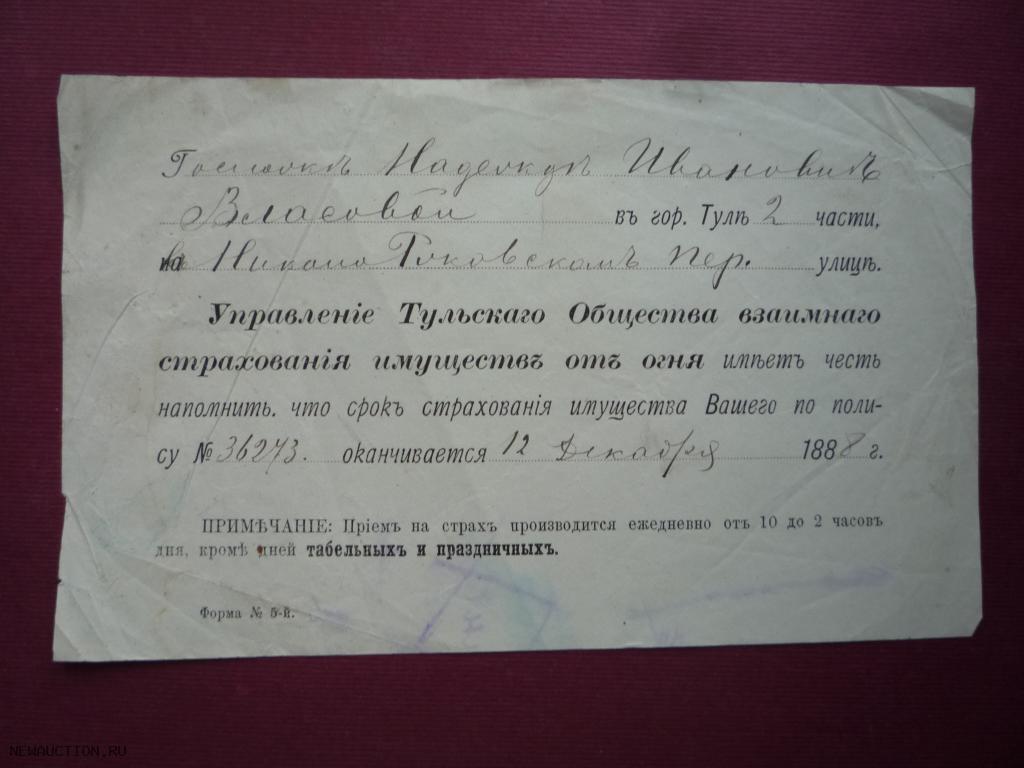 Госпожѣ Надеждѣ Ивановнѣ
Власовой въ гор. Тулѣ 2 части,
Николо Ржовскомъ пер. улицѣ.
Управленіе Тульскаго Общества взаимнаго
страхованія имуществъ отъ огня имѣетъ честь
напомнить. что срокъ страхованія имущества Вашего по поли-
су № 36273. оканчивается 12 Декабря 1888 г.
ПРИМѢЧАНІЕ: Пріемъ на страхъ производится ежедневно отъ 10 до 2 часовъ
дня, кромѣ дней табельныхъ и праздничныхъ.
Форма № 5-й.
NEWAUCTION.RU